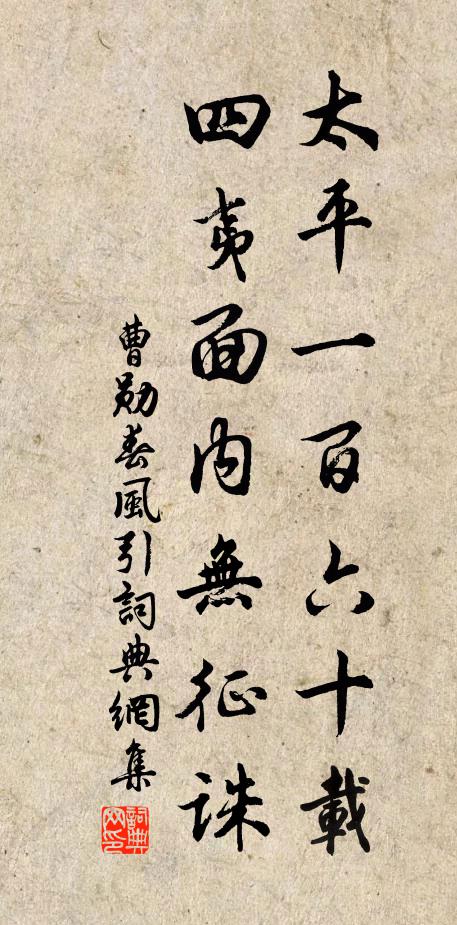 太平一百六十載
四夷面内無征誅
曹勛春風引詞典網集
詞典
网印